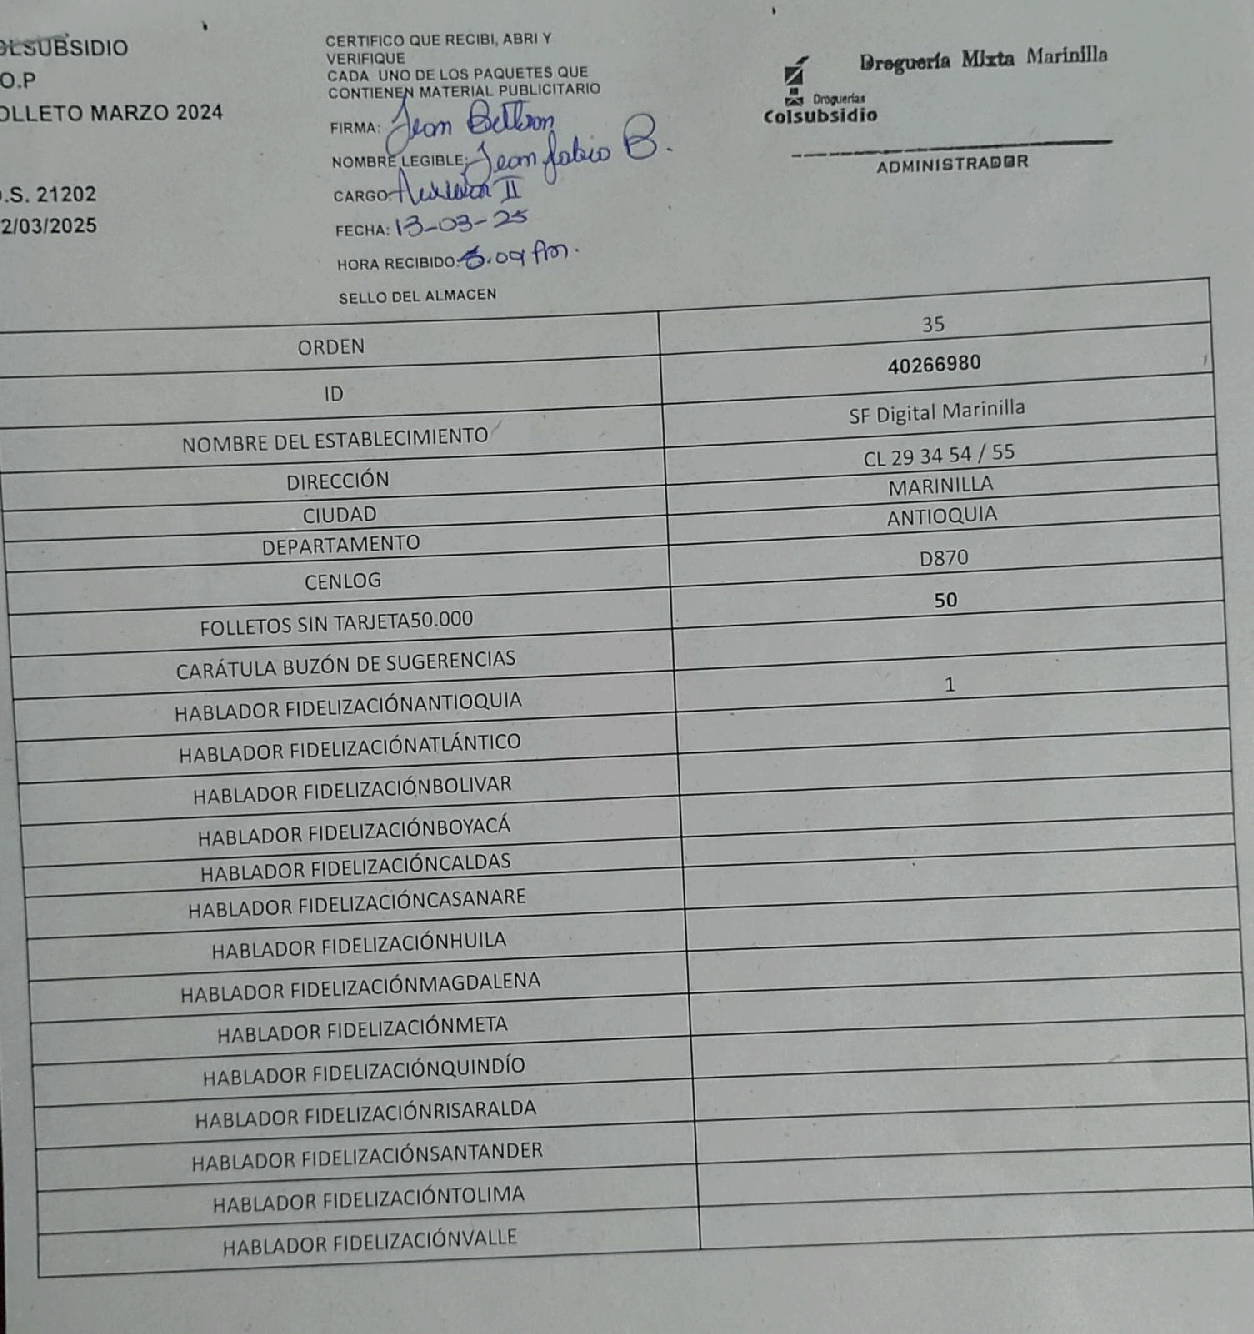 OLSUBSIDIO
O.P
OLLETO MARZO 2024
.S. 21202
2/03/2025
CERTIFICO QUE RECIBI, ABRI Y
VERIFIQUE
CADA UNO DE LOS PAQUETES QUE
CONTIENEN MATERIAL PUBLICITARIO
FIRMA: Jean Beltran
NOMBRE LEGIBLE: Jean fabio B.
CARGO: II
FECHA: 13-03-25
HORA RECIBIDO:
SELLO DEL ALMACEN
Droguería Mixta Marinilla
Droguerías
Colsubsidio
ADMINISTRADOR
ORDEN 35
ID 40266980
NOMBRE DEL ESTABLECIMIENTO SF Digital Marinilla
DIRECCIÓN CL 29 34 54 / 55
CIUDAD MARINILLA
DEPARTAMENTO ANTIOQUIA
CENLOG D870
FOLLETOS SIN TARJETA50.000 50
CARÁTULA BUZÓN DE SUGERENCIAS
HABLADOR FIDELIZACIÓNANTIOQUIA 1
HABLADOR FIDELIZACIÓNATLÁNTICO
HABLADOR FIDELIZACIÓNBOLIVAR
HABLADOR FIDELIZACIÓNBOYACÁ
HABLADOR FIDELIZACIÓNCALDAS
HABLADOR FIDELIZACIÓNCASANARE
HABLADOR FIDELIZACIÓNHUILA
HABLADOR FIDELIZACIÓNMAGDALENA
HABLADOR FIDELIZACIÓNMETA
HABLADOR FIDELIZACIÓNQUINDÍO
HABLADOR FIDELIZACIÓNRISARALDA
HABLADOR FIDELIZACIÓNSANTANDER
HABLADOR FIDELIZACIÓNTOLIMA
HABLADOR FIDELIZACIÓNVALLE